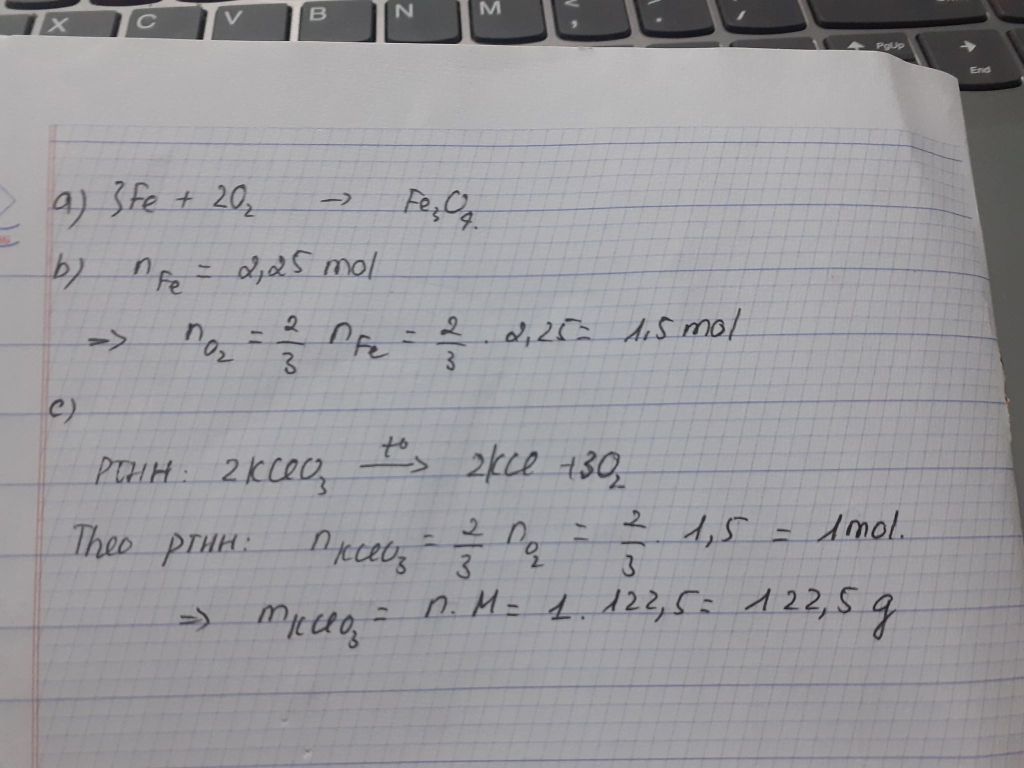 X C V B N M < , > . ? /
PgUp
End
a) 3Fe + 2O₂ → Fe₃O₄.
b) n_Fe = 2,25 mol
=> n_O₂ = 2/3 n_Fe = 2/3 . 2,25 = 1,5 mol
c)
PTHH: 2KClO₃ —t°→ 2KCl + 3O₂
Theo PTHH: n_KClO₃ = 2/3 n_O₂ = 2/3 . 1,5 = 1 mol.
=> m_KClO₃ = n . M = 1 . 122,5 = 122,5 g